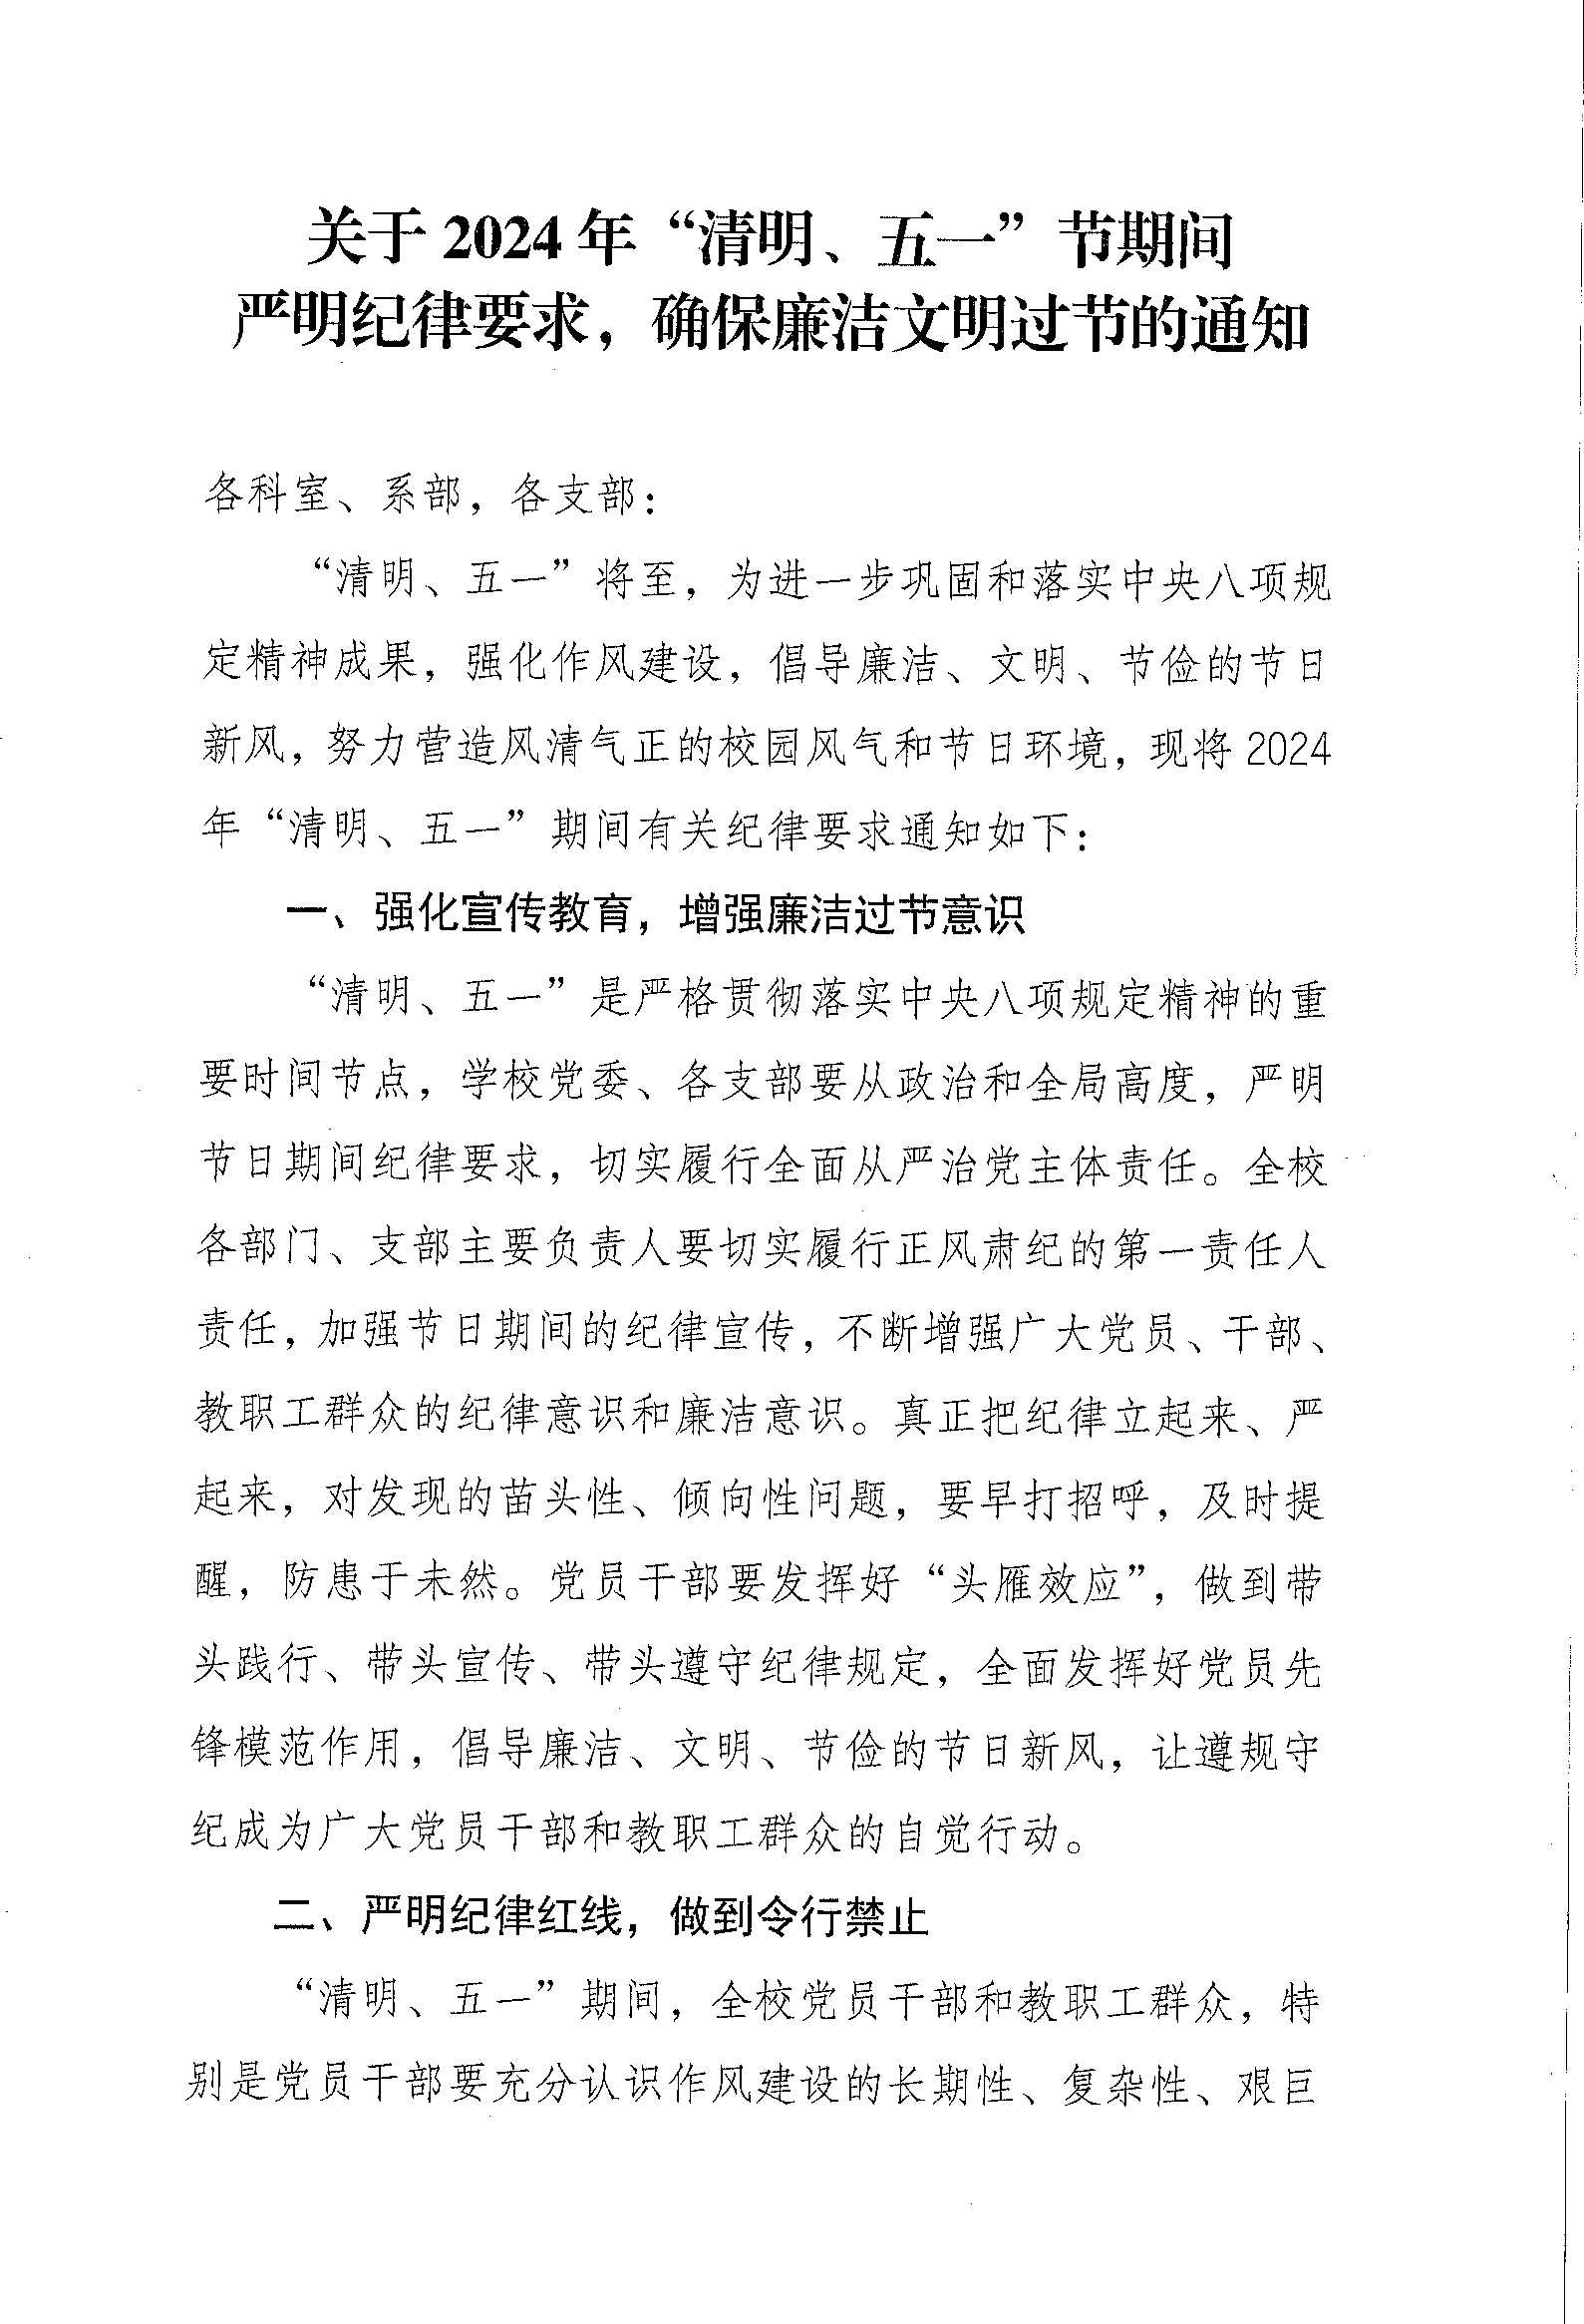 关于 2024 年“清明、五一”节期间
严明纪律要求，确保廉洁文明过节的通知
各科室、系部，各支部：
“清明、五一”将至，为进一步巩固和落实中央八项规
定精神成果，强化作风建设，倡导廉洁、文明、节俭的节日
新风，努力营造风清气正的校园风气和节日环境，现将 2024
年“清明、五一”期间有关纪律要求通知如下：
一、强化宣传教育，增强廉洁过节意识
“清明、五一”是严格贯彻落实中央八项规定精神的重
要时间节点，学校党委、各支部要从政治和全局高度，严明
节日期间纪律要求，切实履行全面从严治党主体责任。全校
各部门、支部主要负责人要切实履行正风肃纪的第一责任人
责任，加强节日期间的纪律宣传，不断增强广大党员、干部、
教职工群众的纪律意识和廉洁意识。真正把纪律立起来、严
起来，对发现的苗头性、倾向性问题，要早打招呼，及时提
醒，防患于未然。党员干部要发挥好“头雁效应”，做到带
头践行、带头宣传、带头遵守纪律规定，全面发挥好党员先
锋模范作用，倡导廉洁、文明、节俭的节日新风，让遵规守
纪成为广大党员干部和教职工群众的自觉行动。
二、严明纪律红线，做到令行禁止
“清明、五一”期间，全校党员干部和教职工群众，特
别是党员干部要充分认识作风建设的长期性、复杂性、艰巨